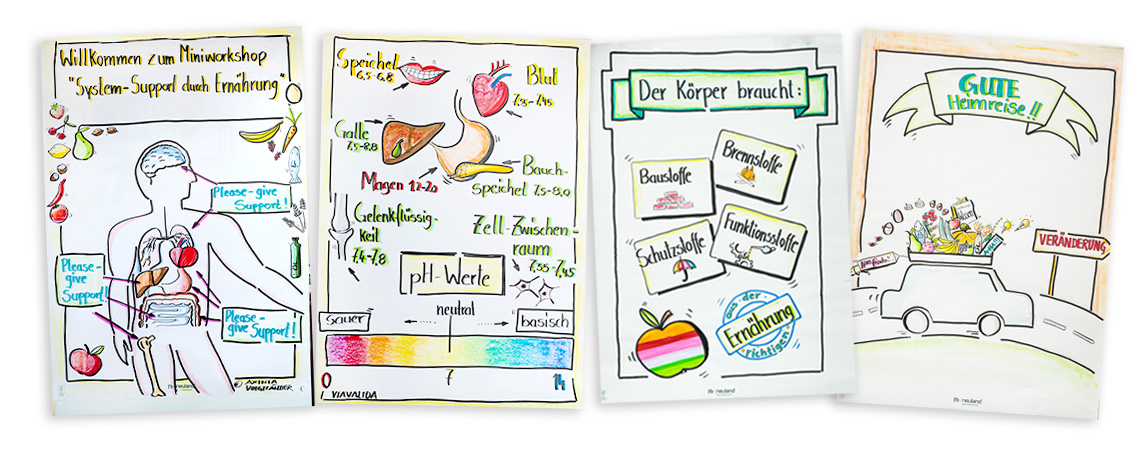 Willkommen zum Miniworkshop
"System-Support durch Ernährung"
Please-give
Support!
Please-
give
Support!
Please-
give Support!
neuland
Speichel
6,5-6,8
Blut
7,35-7,45
Galle
7,5-8,8
Magen 1,2-2,0
Bauch-
speichel 7,5-8,0
Gelenkflüssig-
keit
7,4-7,8
Zell-Zwischen-
raum
7,35-7,45
pH-Werte
neutral
sauer
basisch
0
7
14
VIAVALIDA
Der Körper braucht:
Baustoffe
Brennstoffe
Schutzstoffe
Funktionsstoffe
aus der
Ernährung
richtigen
neuland
GUTE
Heimreise!!
VERÄNDERUNG
neuland